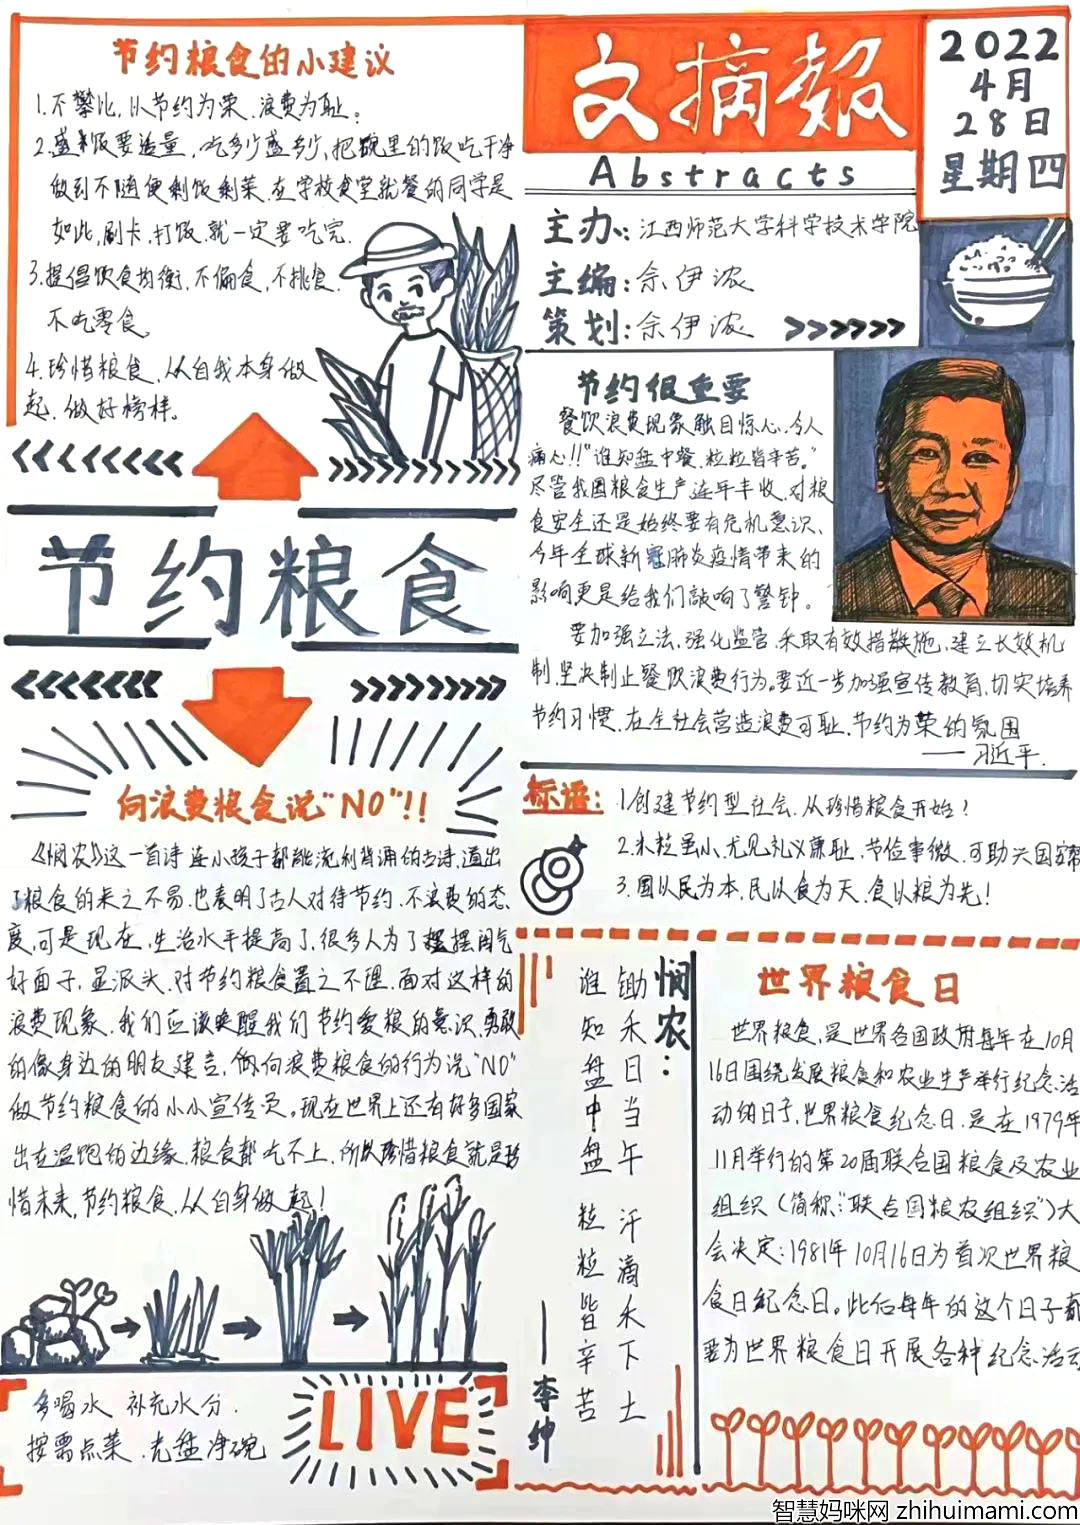 节约粮食的小建议
1.不攀比，以节约为荣，浪费为耻；
2.盛饭要适量，吃多少盛多少，把碗里的饭吃干净
做到不随便剩饭剩菜，在学校食堂就餐的同学是
如此，刷卡，打饭，就一定要吃完.
3.提倡饮食均衡，不偏食，不挑食.
不吃零食。
4.珍惜粮食，从自我本身做
起，做好榜样。
节约粮食
向浪费粮食说"NO"!!
《悯农》这一首诗连小孩子都能流利背诵的古诗，道出
了粮食的来之不易，也表明了古人对待节约，不浪费的态
度，可是现在，生活水平提高了，很多人为了摆阔气
好面子，显派头，对节约粮食置之不理，面对这样的
浪费现象，我们应该唤醒我们节约爱粮的意识，勇敢
的像身边的朋友建言，倾向浪费粮食的行为说"NO"
做节约粮食的小小宣传员。现在世界上还有好多国家
出在温饱的边缘，粮食都吃不上，所以珍惜粮食就是珍
惜未来，节约粮食，从自身做起！
多喝水 补充水分.
按需点菜.光盘净碗
LIVE
文摘報
Abstracts
2022
4月
28日
星期四
主办：江西师范大学科学技术学院
主编：余伊浓
策划：余伊浓
节约很重要
餐饮浪费现象触目惊心，令人
痛心!!"谁知盘中餐，粒粒皆辛苦。"
尽管我国粮食生产连年丰收，对粮
食安全还是始终要有危机意识、
今年全球新冠肺炎疫情带来的
影响更是给我们敲响了警钟。
要加强立法，强化监管，采取有效措施，建立长效机
制，坚决制止餐饮浪费行为。要近一步加强宣传教育，切实培养
节约习惯，在全社会营造浪费可耻，节约为荣的氛围
——习近平.
标语：
1.创建节约型社会，从珍惜粮食开始！
2.米粒虽小，尤见礼义廉耻，节俭事微，可助兴国安邦
3.国以民为本，民以食为天，食以粮为先！
悯农：
锄禾日当午 汗滴禾下土
谁知盘中盘 粒粒皆辛苦
——李绅
世界粮食日
世界粮食，是世界各国政府每年在10月
16日围绕发展粮食和农业生产举行纪念活
动的日子，世界粮食纪念日，是在1979年
11月举行的第20届联合国粮食及农业
组织（简称："联合国粮农组织"）大
会决定：1981年10月16日为首次世界粮
食日纪念日。此后每年的这个日子都
要为世界粮食日开展各种纪念活动
智慧妈咪网 zhihuimami.com